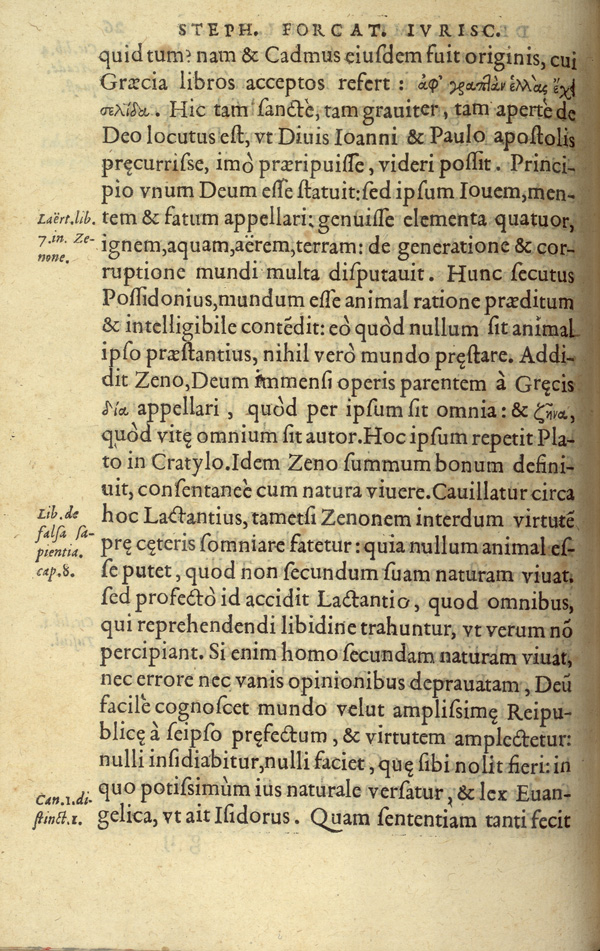 STEPH. FORCAT. IVRISC.
quid tum? nam & Cadmus eiusdem fuit originis, cui
Græcia libros acceptos refert : ἀφ' γραπλὰν ἑλλὰς ἔχι
σελίδα. Hic tam sanctè, tam grauiter, tam apertè de
Deo locutus est, vt Diuis Ioanni & Paulo apostolis
pręcurrisse, imò præripuisse, videri possit. Princi-
pio vnum Deum esse statuit: sed ipsum Iouem, men-
Laërt. lib.
7. in. Ze-
none.
tem & fatum appellari: genuisse elementa quatuor,
ignem, aquam, aërem, terram: de generatione & cor-
ruptione mundi multa disputauit. Hunc secutus
Possidonius, mundum esse animal ratione præditum
& intelligibile contēdit: eò quòd nullum sit animal
ipso præstantius, nihil verò mundo pręstare. Addi-
dit Zeno, Deum immensi operis parentem à Gręcis
δία appellari, quòd per ipsum sit omnia: & ζῆνα,
quòd vitę omnium sit autor. Hoc ipsum repetit Pla-
to in Cratylo. Idem Zeno summum bonum defini-
uit, consentaneè cum natura viuere. Cauillatur circa
Lib. de
falsa sa-
pientia.
cap. 8.
hoc Lactantius, tametsi Zenonem interdum virtutē
prę cęteris somniare fatetur: quia nullum animal es-
se putet, quod non secundum suam naturam viuat.
sed profectò id accidit Lactantio, quod omnibus,
qui reprehendendi libidine trahuntur, vt verum nō
percipiant. Si enim homo secundam naturam viuat,
nec errore nec vanis opinionibus deprauatam, Deū
facilè cognoscet mundo velut amplissimę Reipu-
blicę à seipso pręfectum, & virtutem amplectetur:
nulli insidiabitur, nulli faciet, quę sibi nolit fieri: in
Can. 1. di-
stinct. 1.
quo potissimùm ius naturale versatur, & lex Euan-
gelica, vt ait Isidorus. Quam sententiam tanti fecit